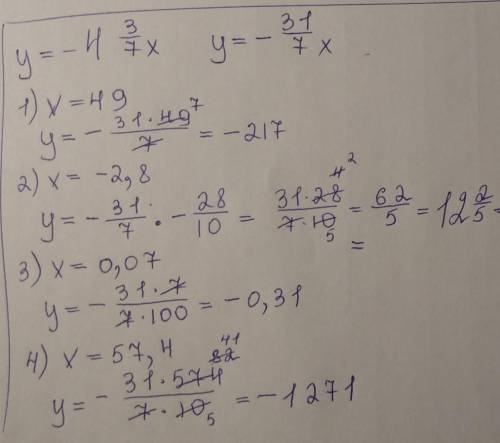 y = - 4 3/7 x     y = - 31/7 x
1) x = 49
y = - 31·49 7/7 = - 217
2) x = -2,8
y = - 31/7 · - 28/10 = 31·28 4 2/7·10 5 = 62/5 = 12 2/5 =
=
3) x = 0,07
y = - 31·7/7·100 = - 0,31
4) x = 57,4
y = - 31·574 82 41/7·10 5 = - 1271